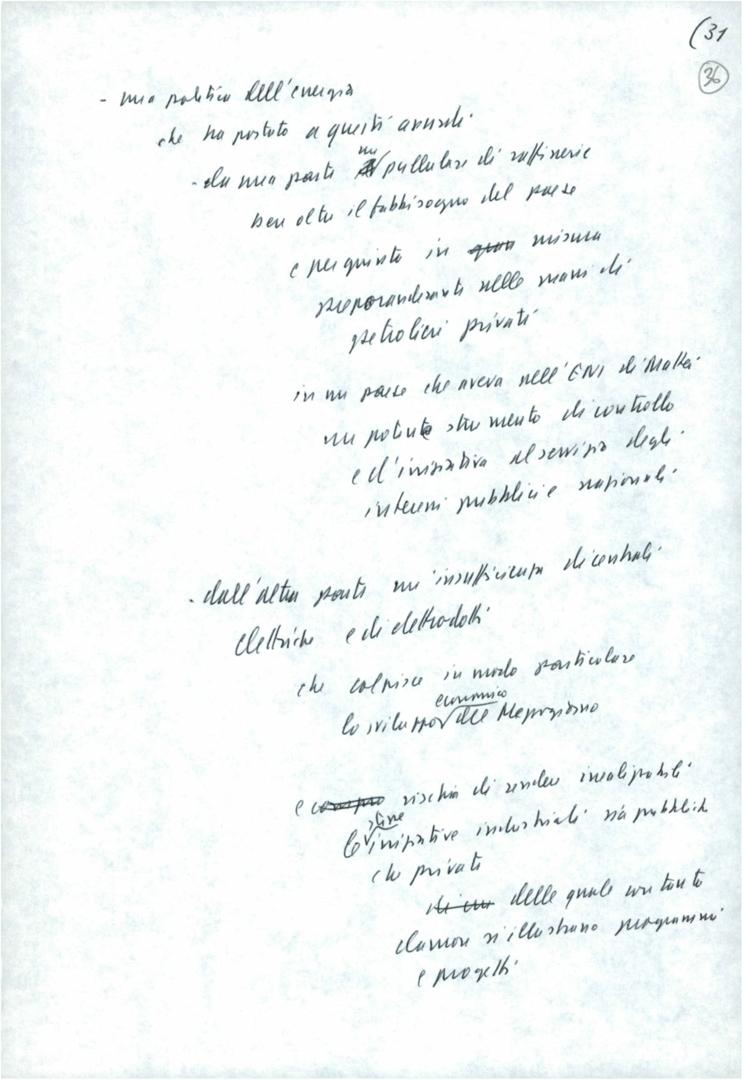 (31
36
- una politica dell'energia
che ha portato a questi assurdi:
- da una parte un pullulare di raffinerie
ben oltre il fabbisogno del paese
e per giunta in gran misura
preponderante nelle mani di
petrolieri privati
in un paese che aveva nell'ENI di Mattei
un potente strumento di controllo
e d'iniziativa al servizio degli
interessi pubblici e nazionali
- dall'altra parte un'insufficienza di centrali
elettriche e di elettrodotti
che colpisce in modo particolare
economico
lo sviluppo del Mezzogiorno
e rischia di rendere irrealizzabili
stesse
le iniziative industriali sia pubbliche
che private
di cui delle quale con tanto
clamore si illustrano programmi
e progetti